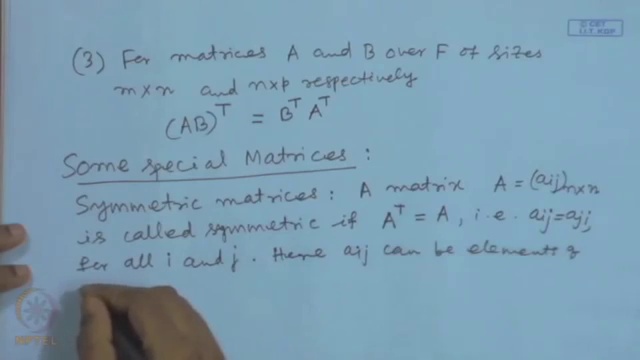 © CET
I.I.T. KGP
(3) For matrices A and B over F of sizes
m×n and n×p respectively
(AB)^T = B^T A^T
Some special Matrices :
Symmetric matrices : A matrix A = (aij)n×n
is called symmetric if A^T = A, i.e. aij=aji,
for all i and j. Here aij can be elements of
NPTEL